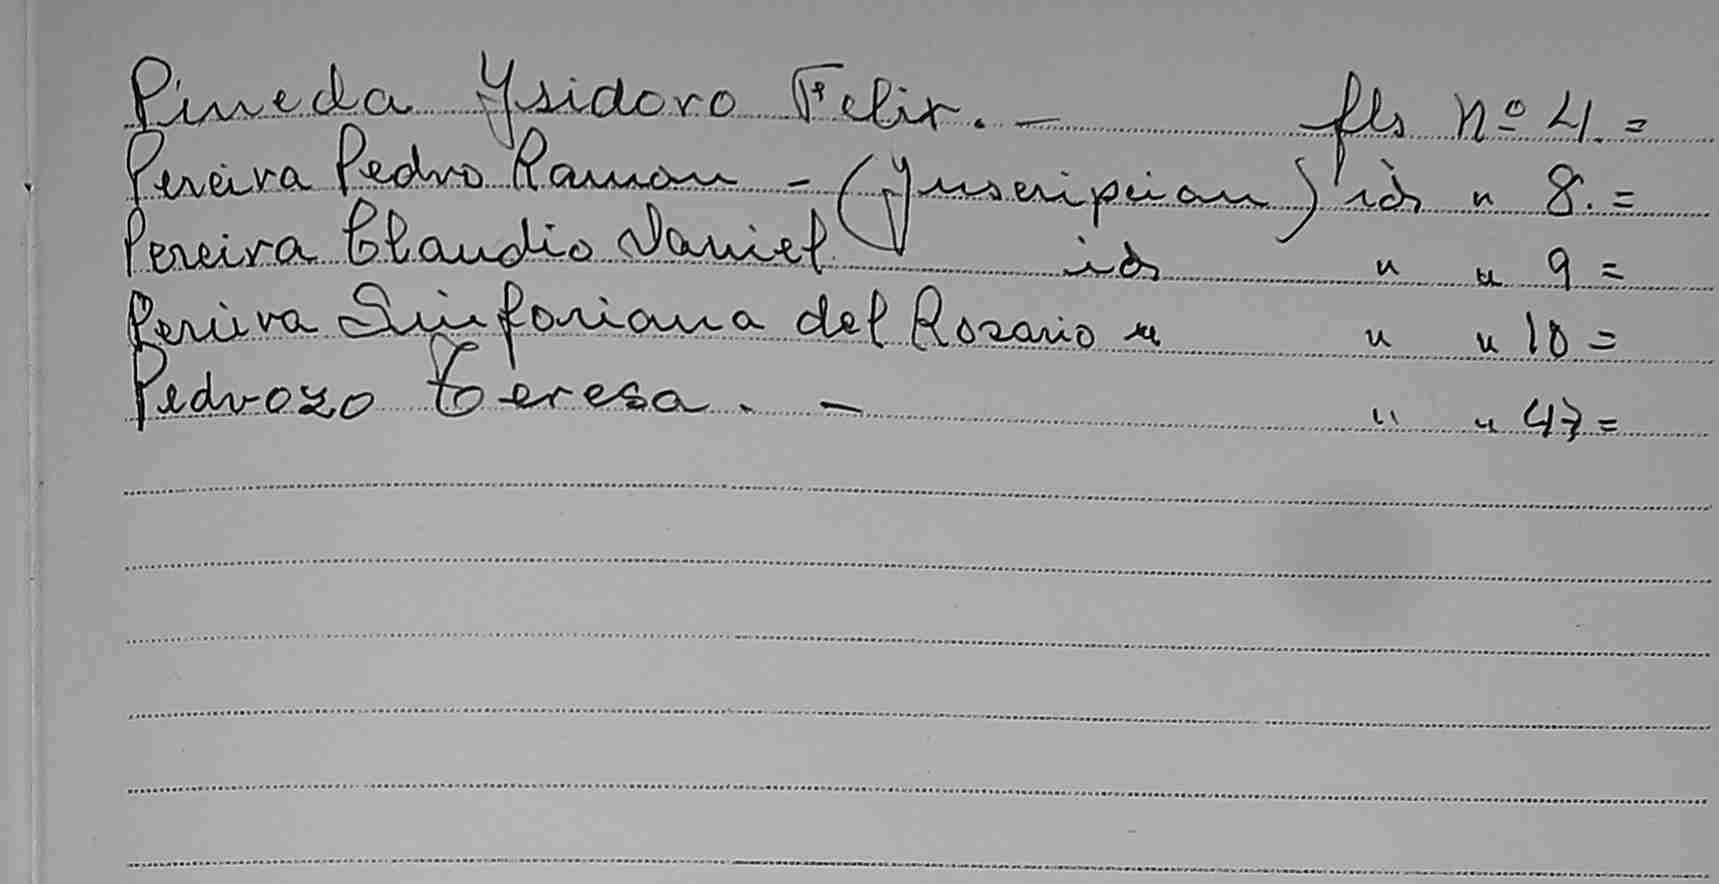 Pineda Ysidoro Felix. - fls nº 4. =
Pereira Pedro Ramon - (Ynscripcion) id " 8. =
Pereira Claudio Daniel id " " 9 =
Pereira Sinforiana del Rosario " " " 10 =
Pedrozo Teresa. - " " 47 =